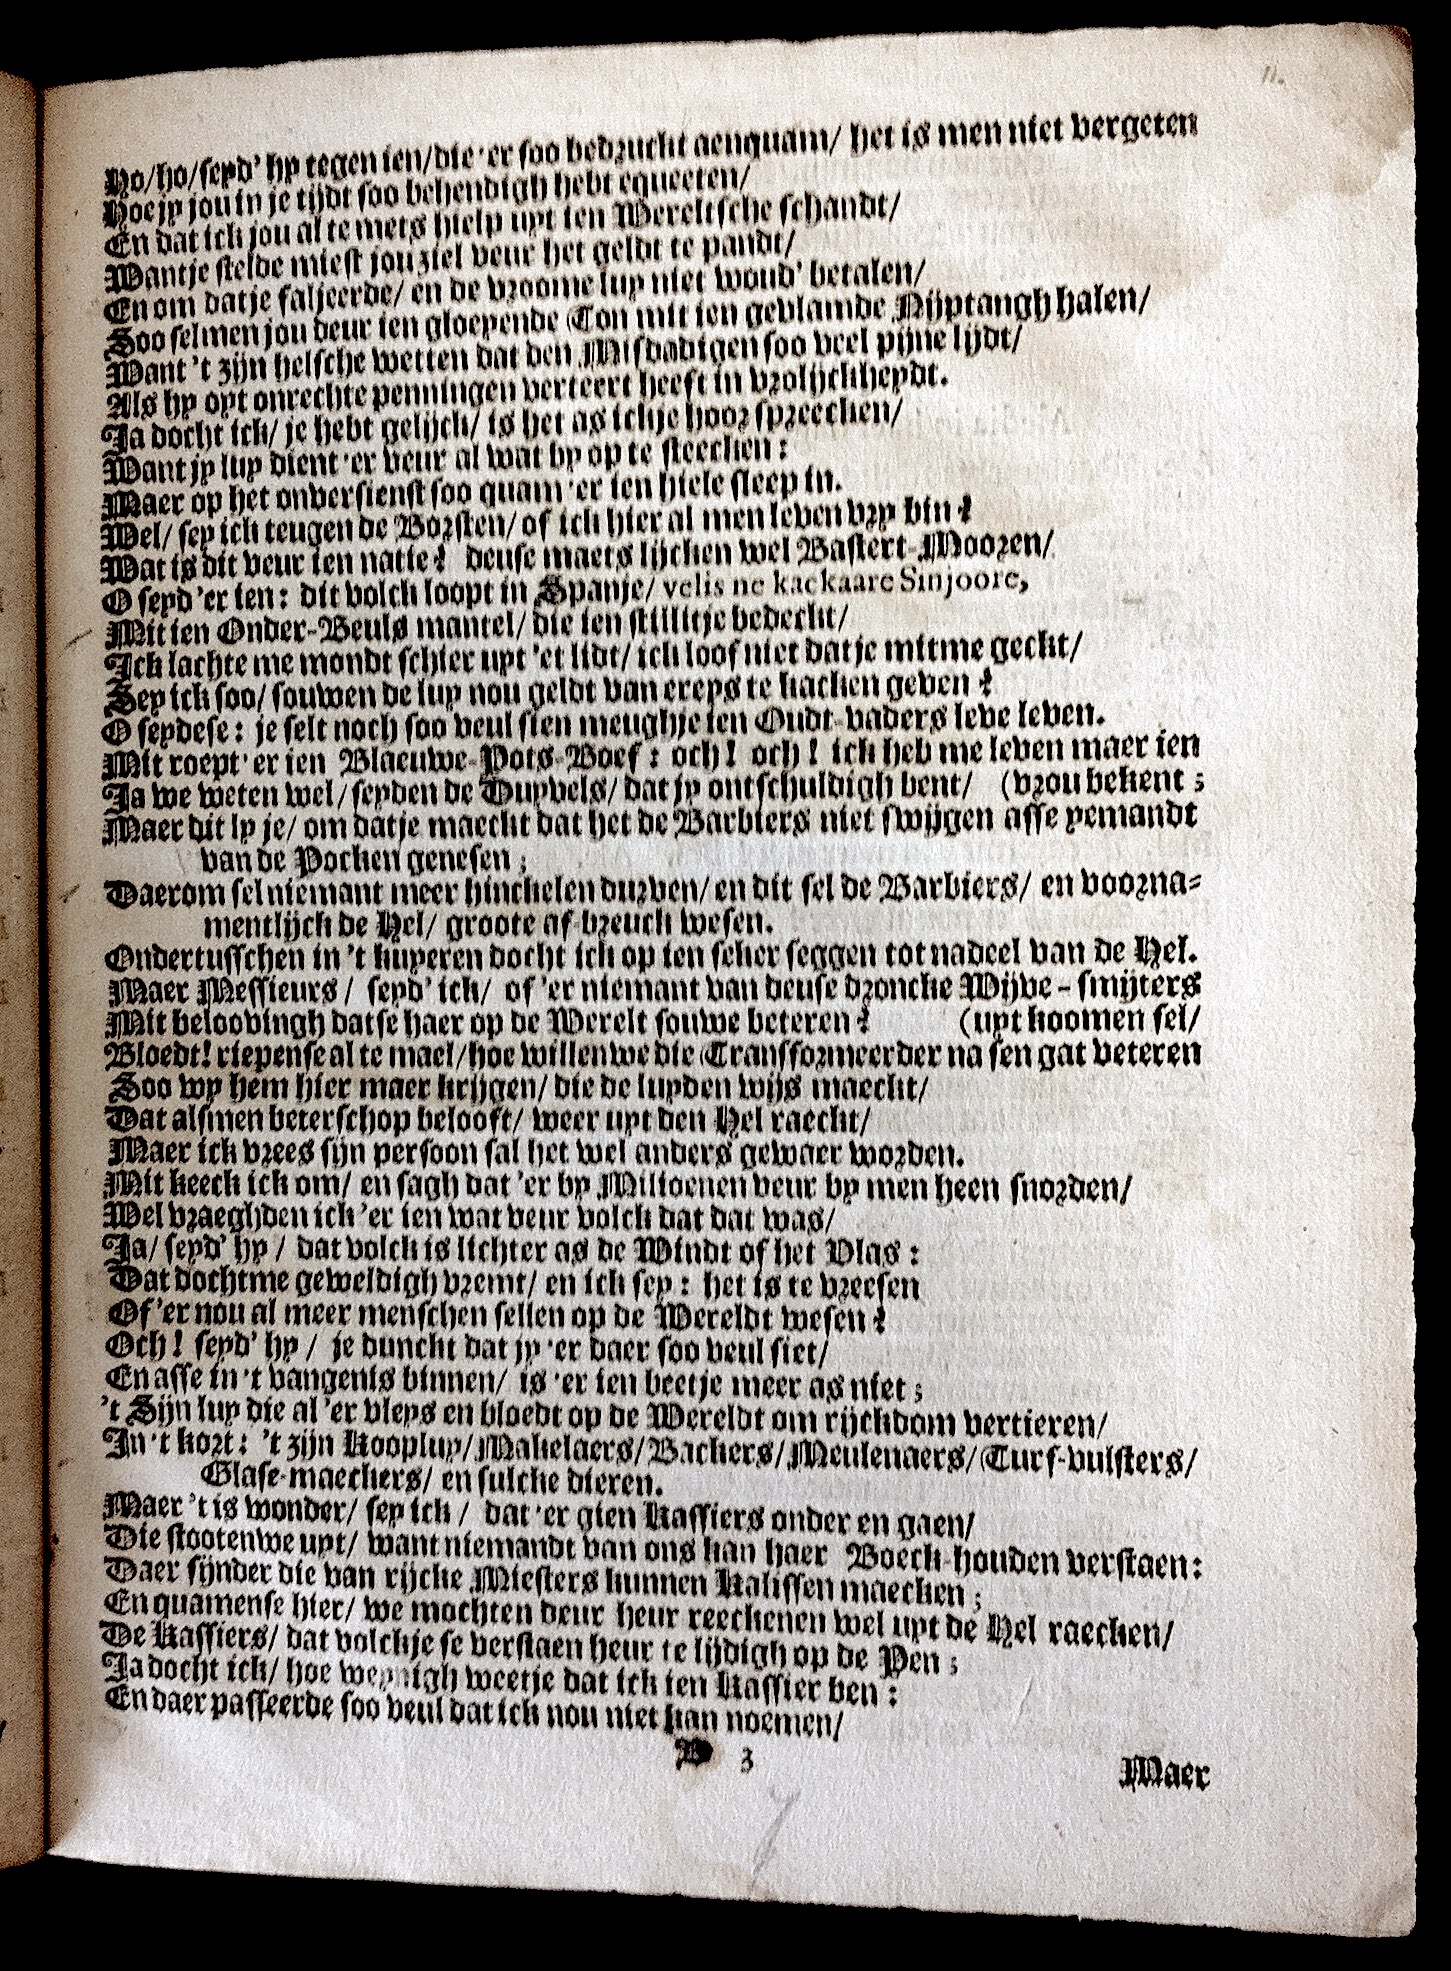 11.
Ho/ho/seyd' hy tegen ien/die 'er soo bedruckt aenquam/ het is men niet vergeten
Hoe jy jou in je tijdt soo behendigh hebt equeeten/
En dat ick jou al te mets hielp uyt ien Wereltsche schandt/
Want je stelde miest jou ziel veur het geldt te pandt/
En om datje faljeerde/ en de vroome luy niet woud' betalen/
Soo selmen jou deur ien gloeyende Ton mit ien gevlamde Nijptangh halen/
Want 't zijn helsche wetten dat den Misdadigen soo veel pijne lijdt/
Als hy opt onrechte penningen verteert heeft in vrolijckheydt.
Ja docht ick/ je hebt gelijck/ is het as ickje hoor spreecken/
Want jy luy dient 'er veur al wat by op te steecken:
Maer op het onversienst soo quam 'er ien hiele sleep in.
Wel/ sey ick teugen de Borsten/ of ick hier al men leven vry bin?
Wat is dit veur ien natie? deuse maets lijcken wel Bastert-Mooren/
O seyd 'er ien: dit volck loopt in Spanje/ velis ne kackaare Sinjoore,
Mit ien Onder-Beuls mantel/ die ien stillitje bedeckt/
Ick lachte me mondt schier uyt 'et lidt/ ick loof niet datje mitme geckt/
Sey ick soo/ souwen de luy nou geldt van ereys te kacken geven?
O seydese: je selt noch soo veul sien meughje ien Oudt-vaders leve leven.
Mit roept 'er ien Blaeuwe-Pots-Boef: och! och! ick heb me leven maer ien
Ja we weten wel/ seyden de Duyvels/ dat jy ontschuldigh bent/ (vrou bekent;
Maer dit ly je/ om datje maeckt dat het de Barbiers niet swijgen asse yemandt
van de Pocken genesen;
Daerom sel niemant meer hinckelen durven/ en dit sel de Barbiers/ en voorna-
mentlijck de Hel/ groote af-breuck wesen.
Ondertusschen in 't kuyeren docht ick op ien seker seggen tot nadeel van de Hel.
Maer Messieurs/ seyd' ick/ of 'er niemant van deuse droncke Wijve-smijters
Mit beloovingh datse haer op de Werelt souwe beteren? (uyt koomen sel/
Bloedt! riepense al te mael/hoe willen we die Transformeerder na sen gat veteren
Soo wy hem hier maer krijgen/ die de luyden wijs maeckt/
Dat alsmen beterschop belooft/ weer uyt den Hel raeckt/
Maer ick vrees sijn persoon sal het wel anders gewaer worden.
Mit keeck ick om/ en sagh dat 'er by Milioenen veur by men heen snorden/
Wel vraeghden ick 'er ien wat veur volck dat dat was/
Ja/ seyd' hy/ dat volck is lichter as de Windt of het Vlas:
Dat dochtme geweldigh vremt/ en ick sey: het is te vreesen
Of 'er nou al meer menschen sellen op de Wereldt wesen?
Och! seyd' hy/ je dunckt dat jy 'er daer soo veul siet/
En asse in 't vangenis binnen/ is 'er ien beetje meer as niet;
't Sijn luy die al 'er vleys en bloedt op de Wereldt om rijckdom vertieren/
In 't kort: 't zijn Kooplup/Makelaers/Backers/Meulenaers/Turf-vulsters/
Glase-maeckers/ en sulcke dieren.
Maer 't is wonder/ sey ick/ dat 'er gien Kassiers onder en gaen/
Die stootenwe uyt/ want niemandt van ons kan haer Boeck-houden verstaen:
Daer sijnder die van rijcke Miesters kunnen Kalissen maecken;
En quamense hier/ we mochten deur heur reeckenen wel uyt de Hel raecken/
De Kassiers/ dat volckje se verstaen heur te lijdigh op de Pen;
Ja docht ick/ hoe weynigh weetje dat ick ien Kassier ben:
En daer passeerde soo veul dat ick nou niet kan noemen/
B 3
Maer